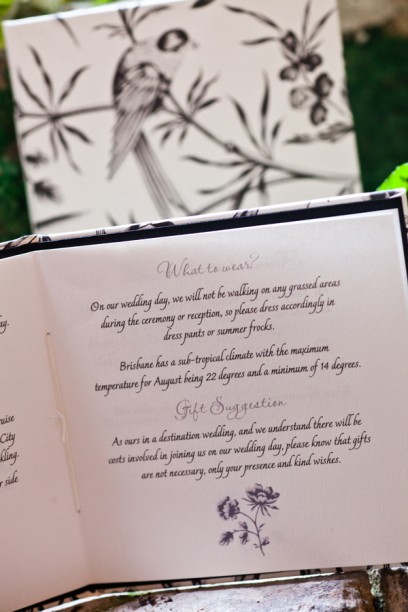 ay.
ruise
City
kling.
r side
What to wear?
On our wedding day, we will not be walking on any grassed areas
during the ceremony or reception, so please dress accordingly in
dress pants or summer frocks.
Brisbane has a sub-tropical climate with the maximum
temperature for August being 22 degrees and a minimum of 14 degrees.
Gift Suggestion
As ours in a destination wedding, and we understand there will be
costs involved in joining us on our wedding day, please know that gifts
are not necessary, only your presence and kind wishes.